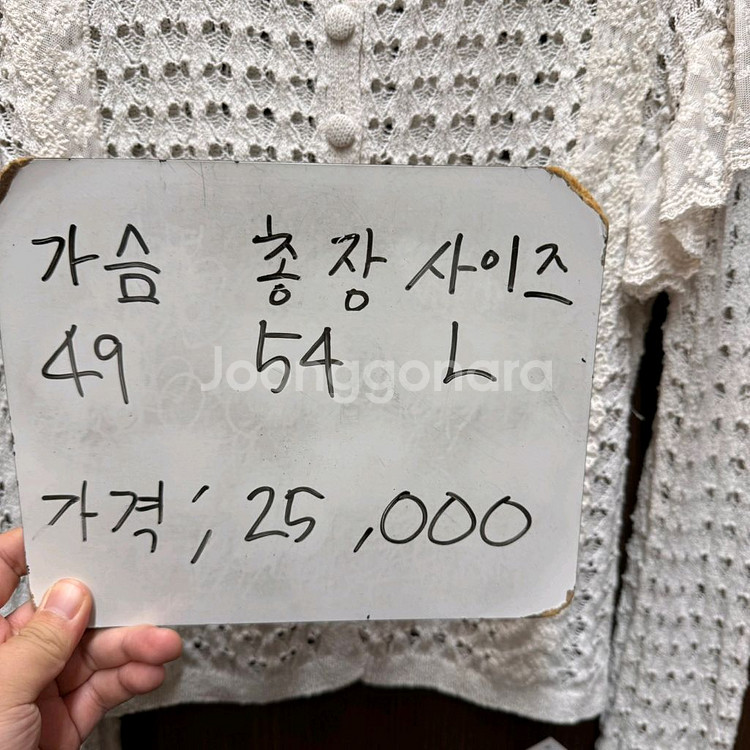 가슴 총장 사이즈
49 54 L
Joonggonara
가격; 25,000